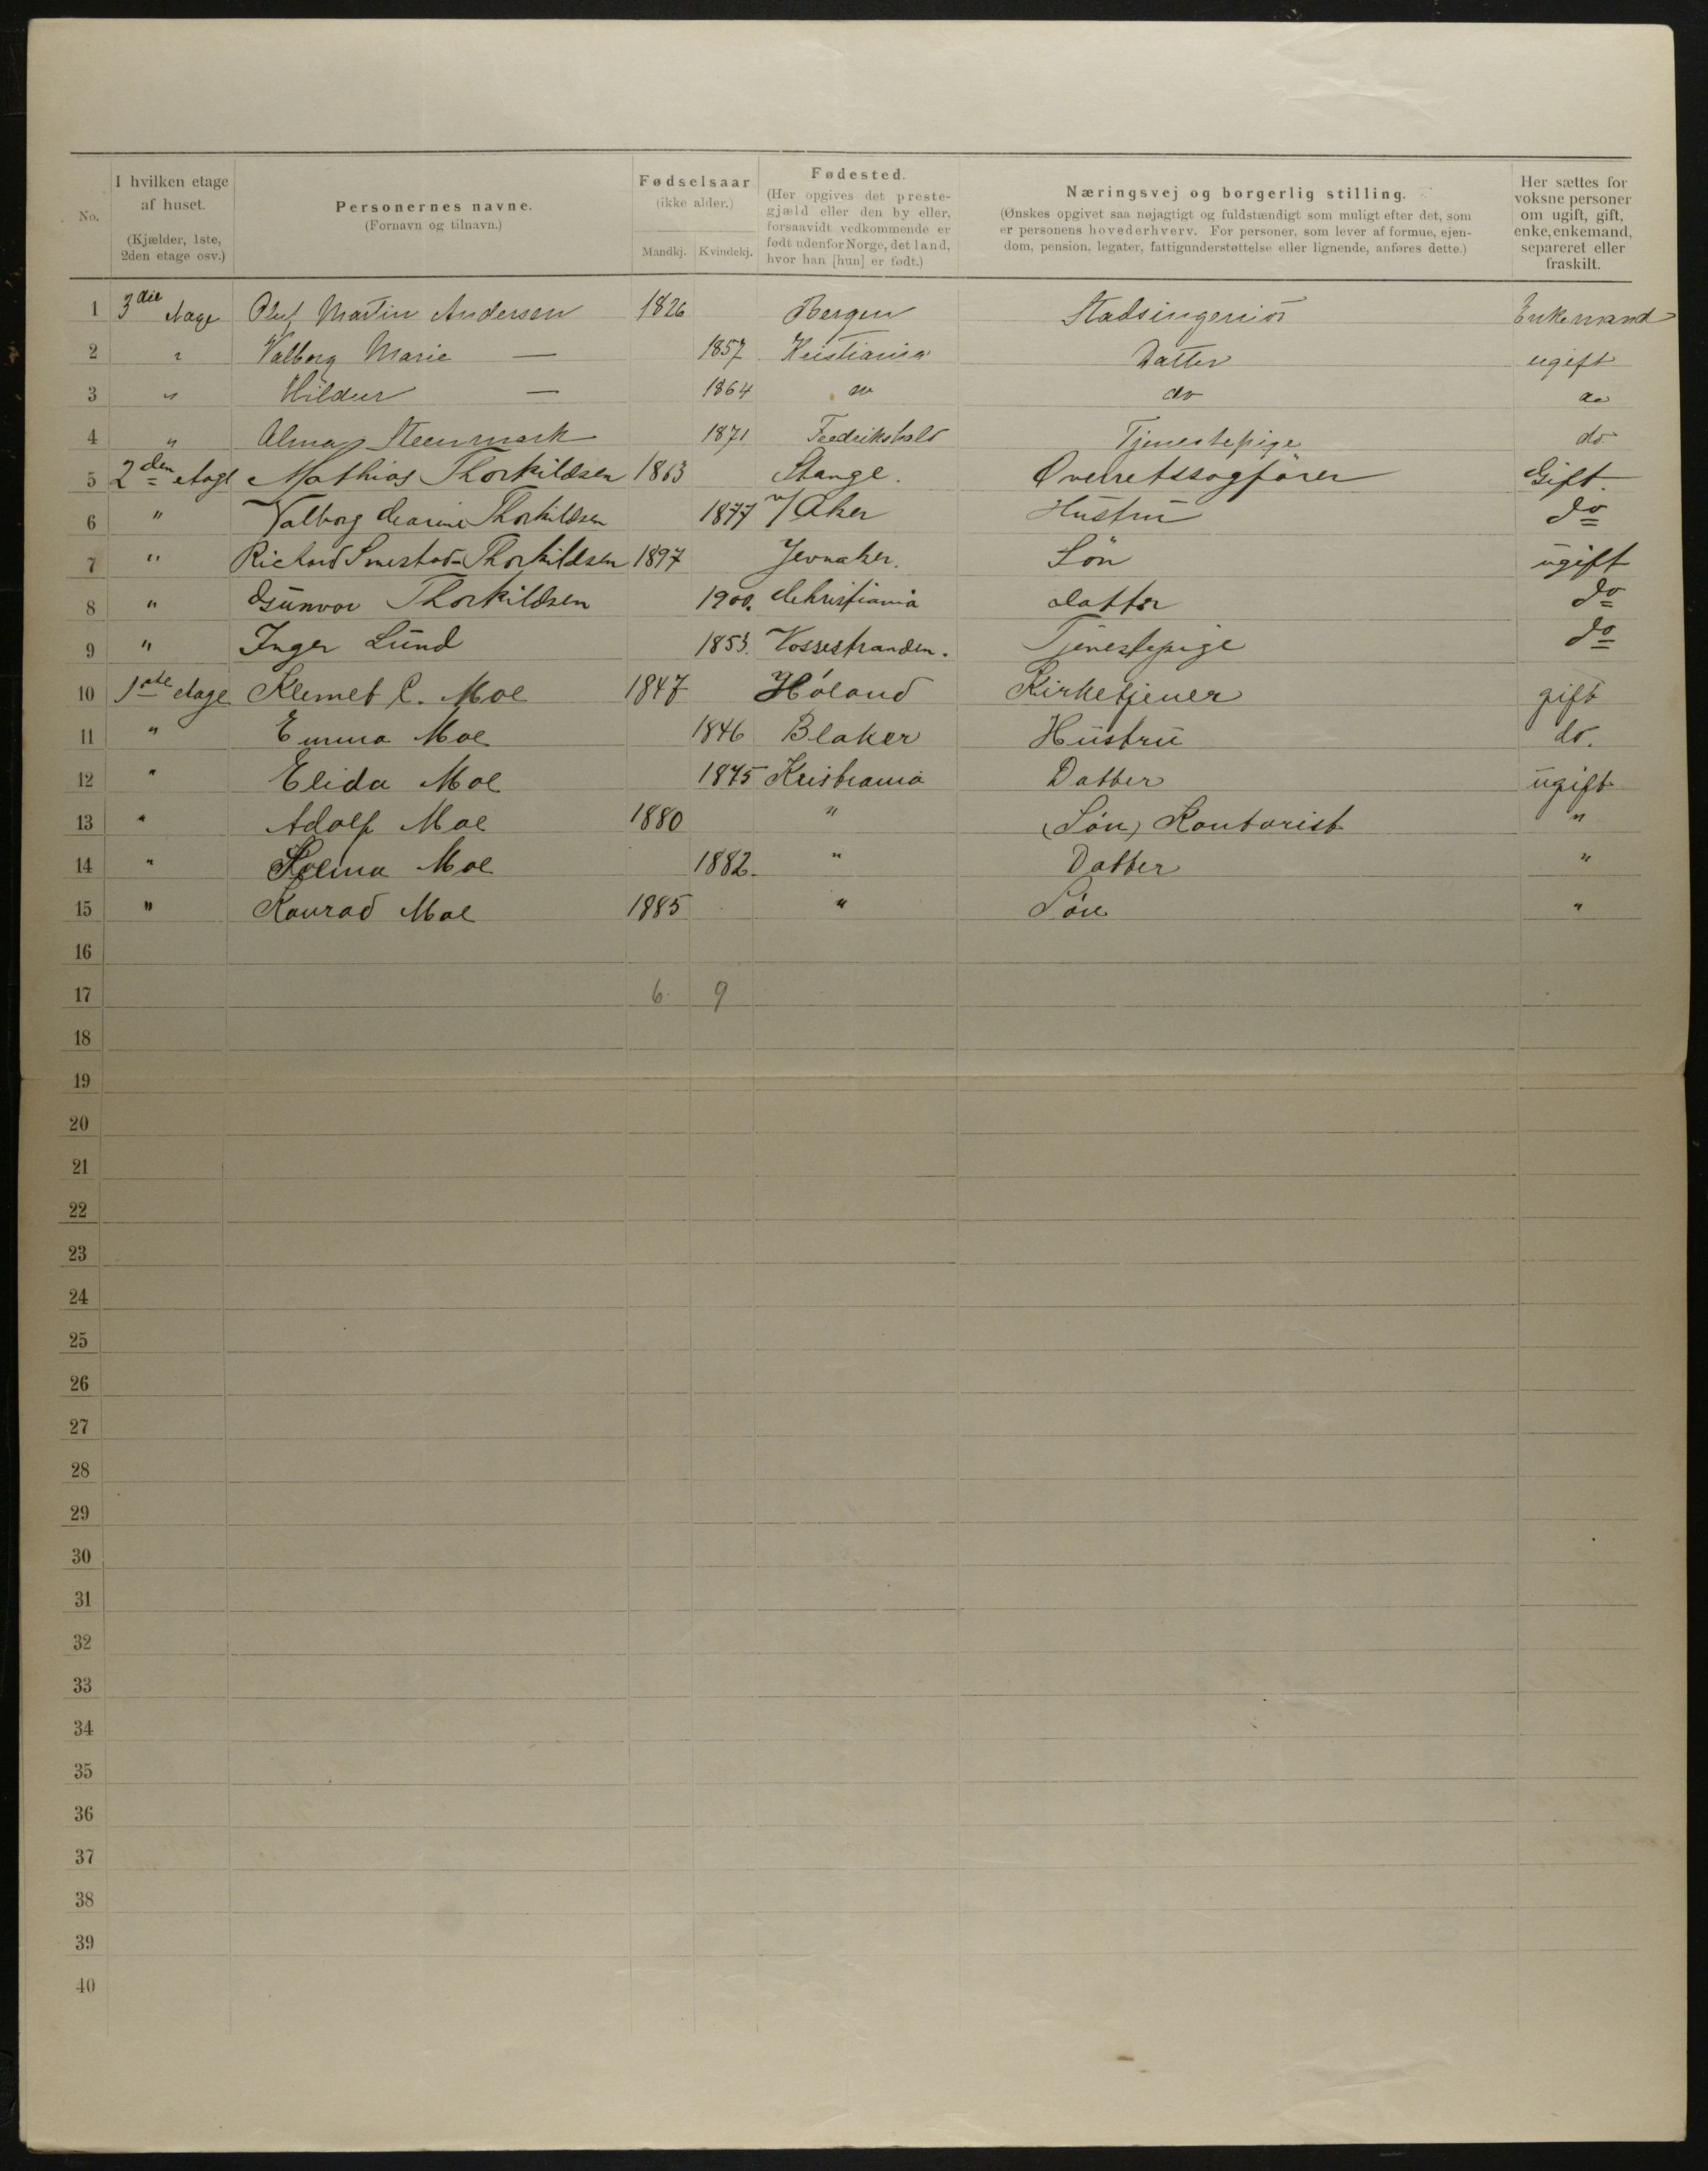 No.
I hvilken etage af huset.
(Kjælder, 1ste, 2den etage osv.)
Personernes navne.
(Fornavn og tilnavn.)
Fødselsaar
(ikke alder.)
Mandkj. Kvindekj.
Fødested.
(Her opgives det prestegjæld eller den by eller, forsaavidt vedkommende er født udenfor Norge, det land, hvor han [hun] er født.)
Næringsvej og borgerlig stilling.
(Ønskes opgivet saa nøjagtigt og fuldstændigt som muligt efter det, som er personens hovederhverv. For personer, som lever af formue, ejendom, pension, legater, fattigunderstøttelse eller lignende, anføres dette.)
Her sættes for voksne personer om ugift, gift, enke, enkemand, separeret eller fraskilt.
1 3die etage Oluf Martin Andersen 1826 Bergen Stadsingeniör Enkemand
2 " Valborg Marie — 1857 Kristiania Datter ugift
3 " Hildur — 1864 do do do
4 " Alma Steenmark 1871 Fredrikshald Tjenestepige do
5 2den etage Mathias Thorkildsen 1863 Stange. Overretssagfører Gift.
6 " Valborg Marine Thorkildsen 1877 v/Aker Hustru do
7 " Richard Smestad-Thorkildsen 1897 Jevnaker. Sön ugift
8 " Gunvor Thorkildsen 1900. Christiania datter do
9 " Inger Lund 1853. Vossestranden. Tjenestepige do
10 1ste etage Klemet C. Moe 1847 Höland Kirketjener gift
11 " Emma Moe 1846 Blaker Hustru do.
12 " Elida Moe 1875 Kristiania Datter ugift
13 " Adolf Moe 1880 " (Sön) Kontorist "
14 " Moe 1882. " Datter "
15 " Konrad Moe 1885 " Sön "
16
17 6 9
18
19
20
21
22
23
24
25
26
27
28
29
30
31
32
33
34
35
36
37
38
39
40